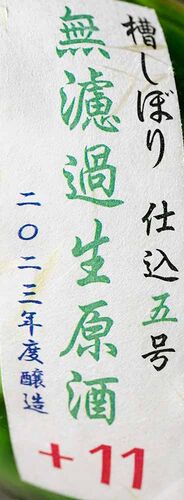 槽しぼり 仕込五号
無濾過生原酒
二〇二三年度醸造
+11